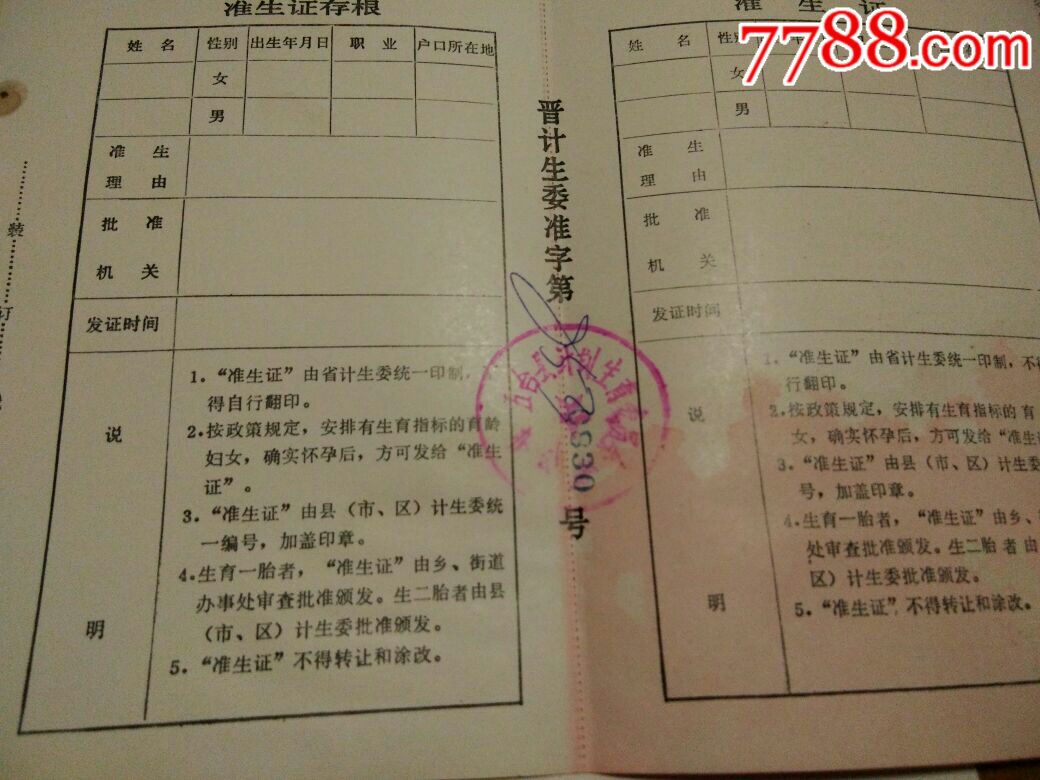 准生证存根
姓名 性别 出生年月日 职业 户口所在地
女
男
准生
理由
批准
机关
发证时间
说
明
1.“准生证”由省计生委统一印制,
得自行翻印。
2.按政策规定,安排有生育指标的育龄
妇女,确实怀孕后,方可发给“准生
证”。
3.“准生证”由县(市、区)计生委统
一编号,加盖印章。
4.生育一胎者,“准生证”由乡、街道
办事处审查批准颁发。生二胎者由县
(市、区)计生委批准颁发。
5.“准生证”不得转让和涂改。
装
订
晋计生委准字第
0830
号
五台县计划生育
准生证
7788.com
姓名 性别
女
男
准生
理由
批准
机关
发证时间
说
明
1.“准生证”由省计生委统一印制,不
行翻印。
2.按政策规定,安排有生育指标的育
女,确实怀孕后,方可发给“准生
3.“准生证”由县(市、区)计生委
号,加盖印章。
4.生育一胎者,“准生证”由乡、
处审查批准颁发。生二胎者由
区)计生委批准颁发。
5.“准生证”不得转让和涂改。